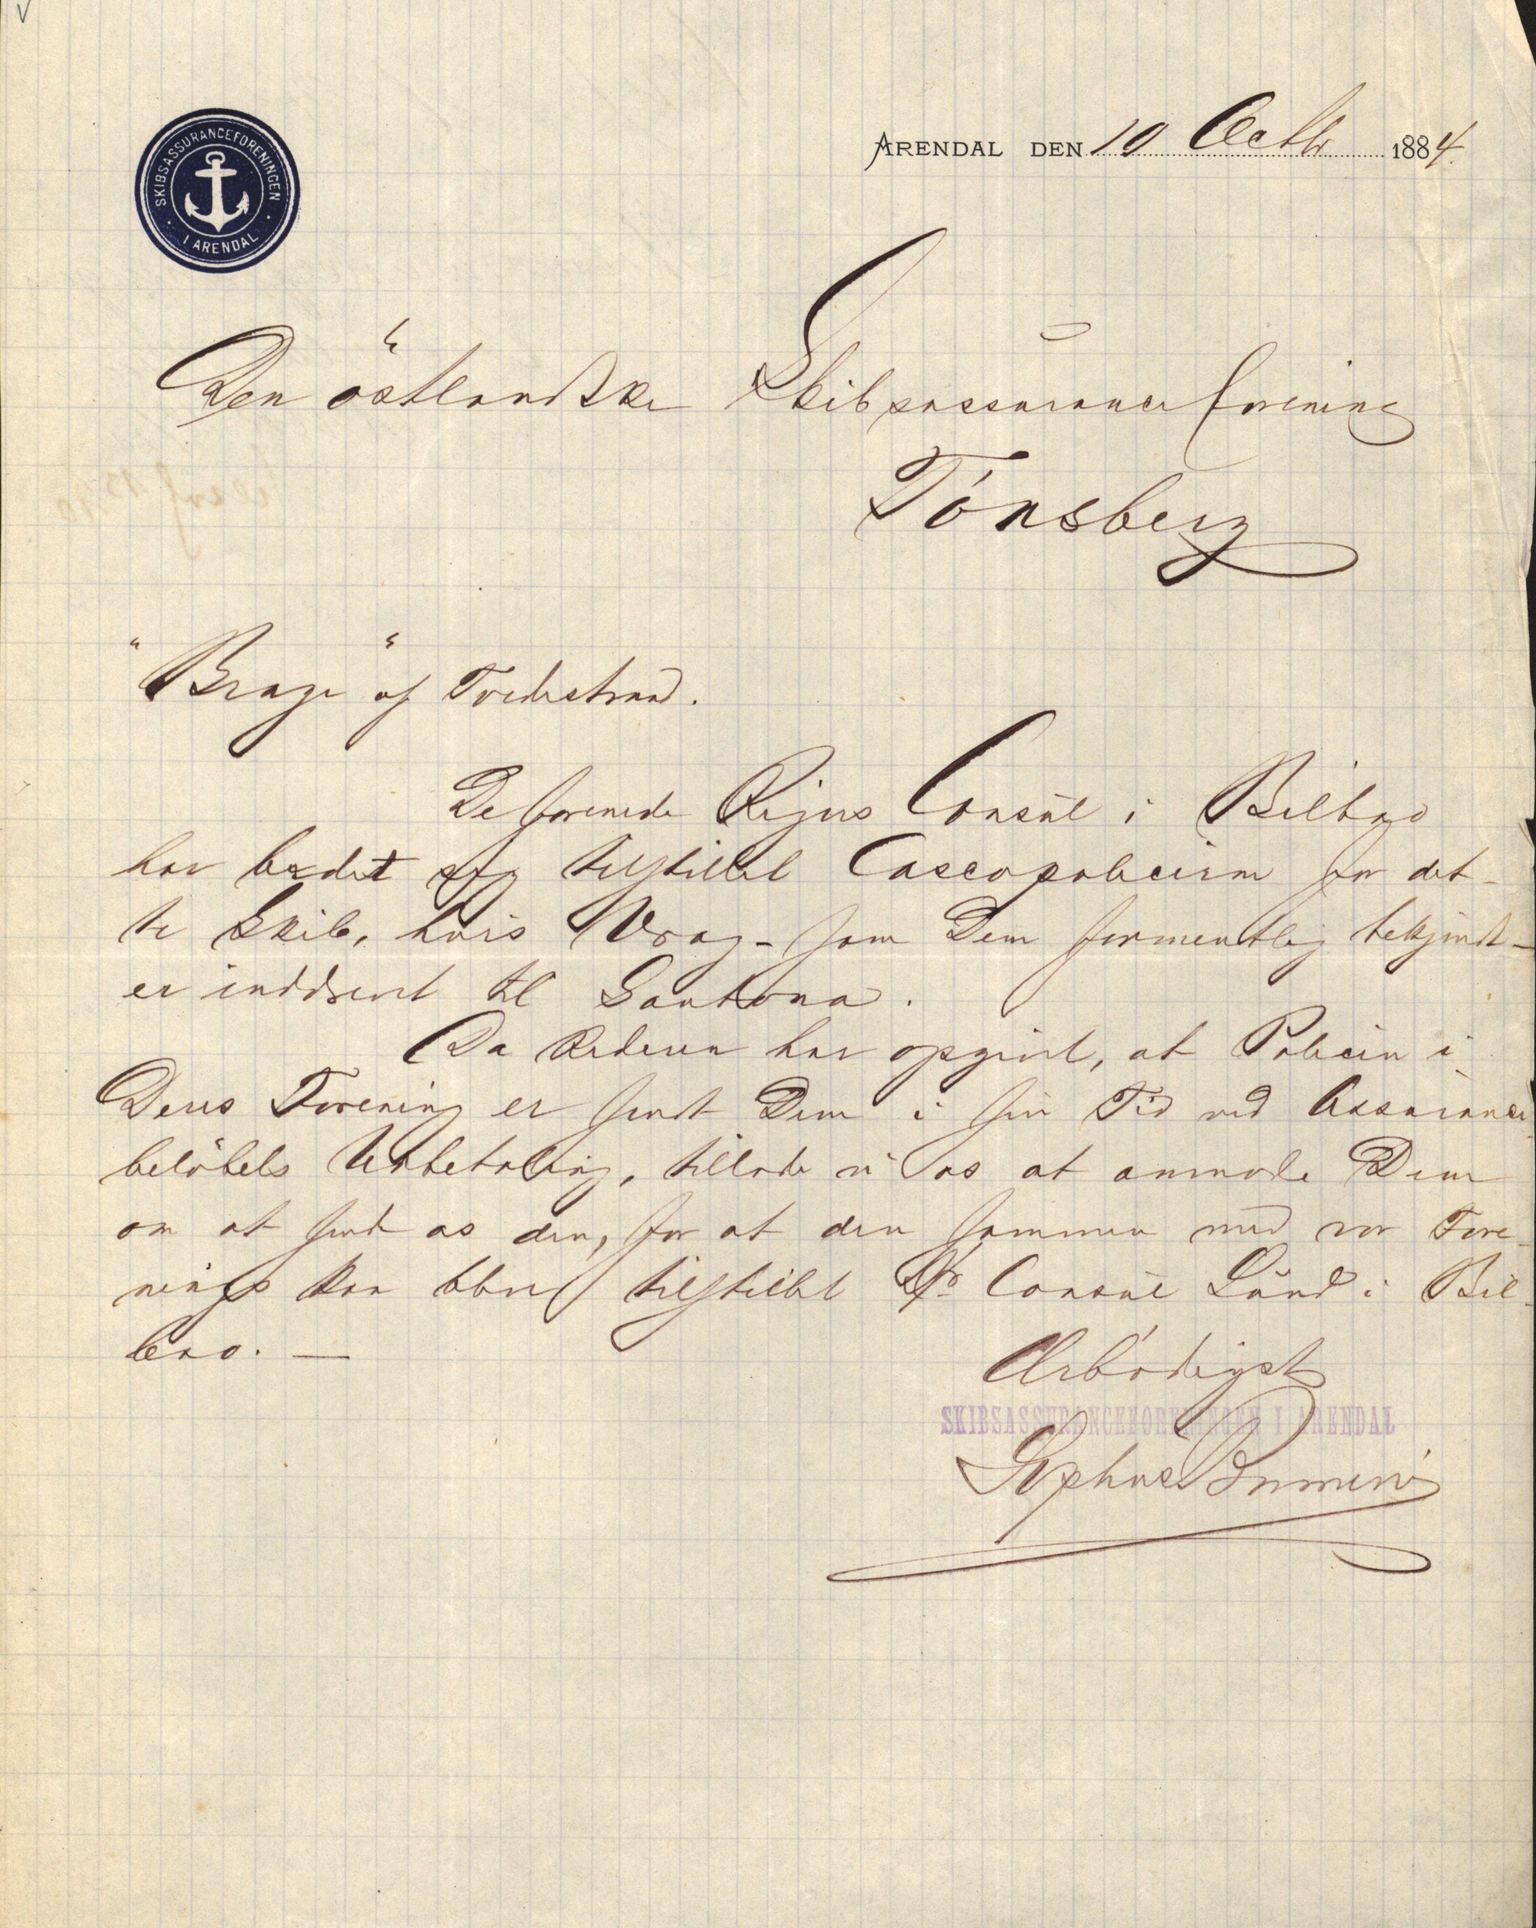 SKIBSASSURANCEFORENINGEN
I ARENDAL
ARENDAL DEN 10 Octbr 1884.
Den östlandske Skibsassuranceforening
Tönsberg
"Brage" af Tvedestrand.
De forenede Rigers Consul i Bilbao
har bedet sig tilstillet Cascopolicerne for det-
te Skib, hvis Vrag - som Dem formentlig bekjendt -
er inddrevet til Santona.
Da Rederen har opgivet, at Policen i
Deres Forening er sendt Dem i sin Tid ved Assurance
belöbets Udbetaling, tillade vi os at anmode Dem
om at sende os den, for at den sammen med vor Fore-
nings kan blive tilstillet Hr Consul Lund i Bil-
bao. —
Ærbödigst
SKIBSASSURANCEFORENINGEN I ARENDAL
Sophus